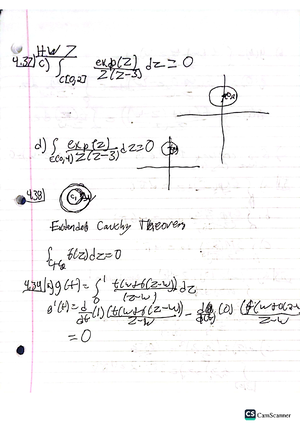 HW 7
4.37 c) ∫_{C[0,2]} exp(z)/z(z-3) dz = 0
d) ∫_{C[0,4]} exp(z)/z(z-3) dz = 0
4.38
Extended Cauchy Theorem
∫ f(z)dz = 0
4.34 g(t) = ∫_0^1 f(w+t(z-w))/(z-w) dz
g'(t) = d/dt (1) (f(w+t(z-w))/z-w - (0)
= 0
CS CamScanner